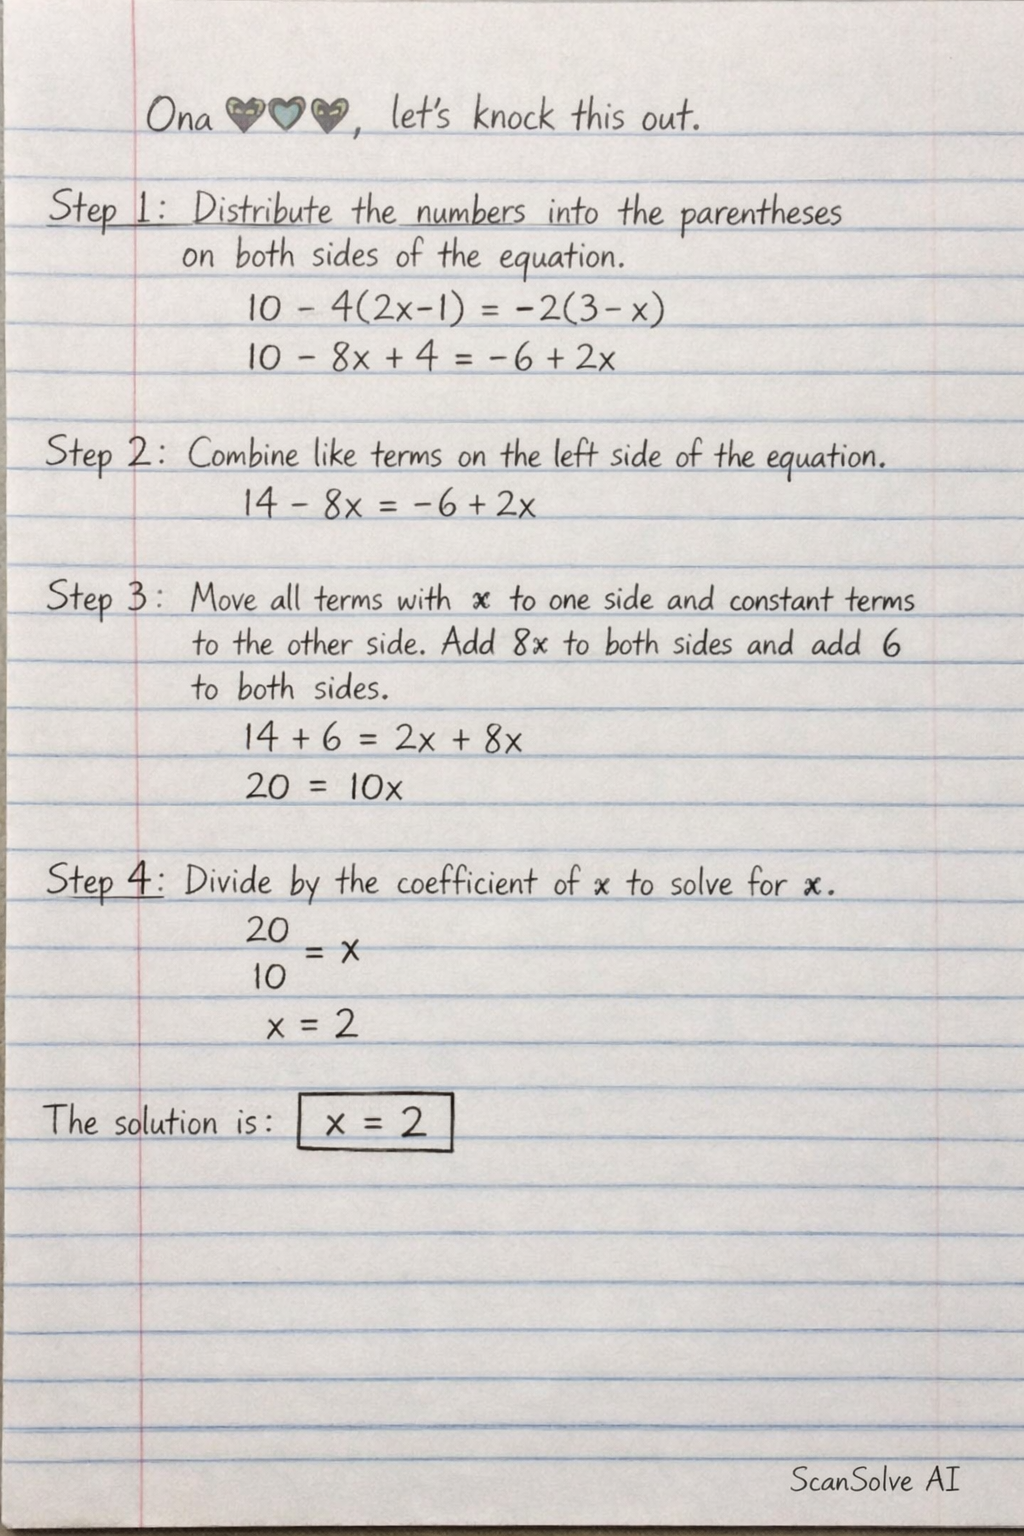 Ona 🩶🩵🩶, let's knock this out.
Step 1: Distribute the numbers into the parentheses
on both sides of the equation.
10 - 4(2x-1) = -2(3-x)
10 - 8x + 4 = -6 + 2x
Step 2: Combine like terms on the left side of the equation.
14 - 8x = -6 + 2x
Step 3: Move all terms with x to one side and constant terms
to the other side. Add 8x to both sides and add 6
to both sides.
14 + 6 = 2x + 8x
20 = 10x
Step 4: Divide by the coefficient of x to solve for x.
20
= x
10
x = 2
The solution is: x = 2
ScanSolve AI